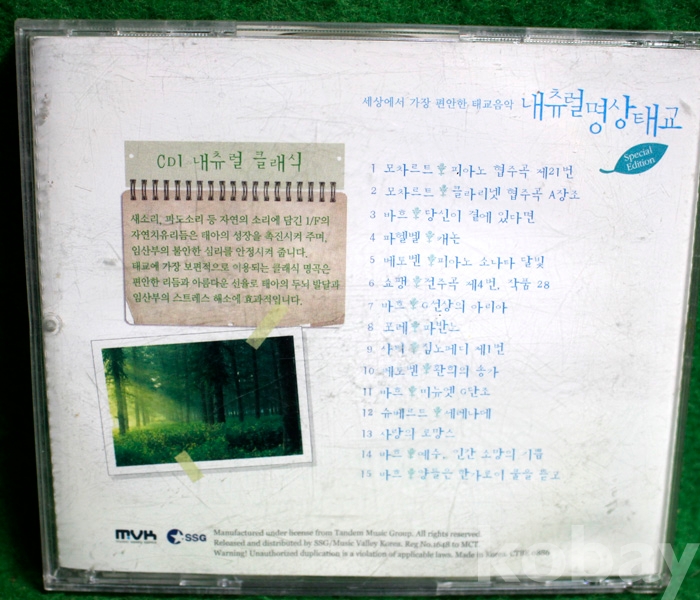 세상에서 가장 편안한 태교음악 내츄럴명상태교
Special
Edition
CD1 내츄럴 클래식
새소리, 파도소리 등 자연의 소리에 담긴 1/F의
자연치유리듬은 태아의 성장을 촉진시켜 주며,
임산부의 불안한 심리를 안정시켜 줍니다.
태교에 가장 보편적으로 이용되는 클래식 명곡은
편안한 리듬과 아름다운 선율로 태아의 두뇌 발달과
임산부의 스트레스 해소에 효과적입니다.
1 모차르트 피아노 협주곡 제21번
2 모차르트 클라리넷 협주곡 A장조
3 바흐 당신이 곁에 있다면
4 파헬벨 캐논
5 베토벤 피아노 소나타 달빛
6 쇼팽 전주곡 제4번, 작품 28
7 바흐 G선상의 아리아
8 포레 파반느
9 사티 짐노페디 제1번
10 베토벤 환희의 송가
11 바흐 미뉴엣 G단조
12 슈베르트 세레나데
13 사랑의 로망스
14 바흐 예수, 인간 소망의 기쁨
15 바흐 양들은 한가로이 풀을 뜯고
MVK
SSG
Manufactured under license from Tandem Music Group. All rights reserved.
Released and distributed by SSG/Music Valley Korea. Reg No.1648 to MCT.
Warning! Unauthorized duplication is a violation of applicable laws. Made in Korea.
Kobay